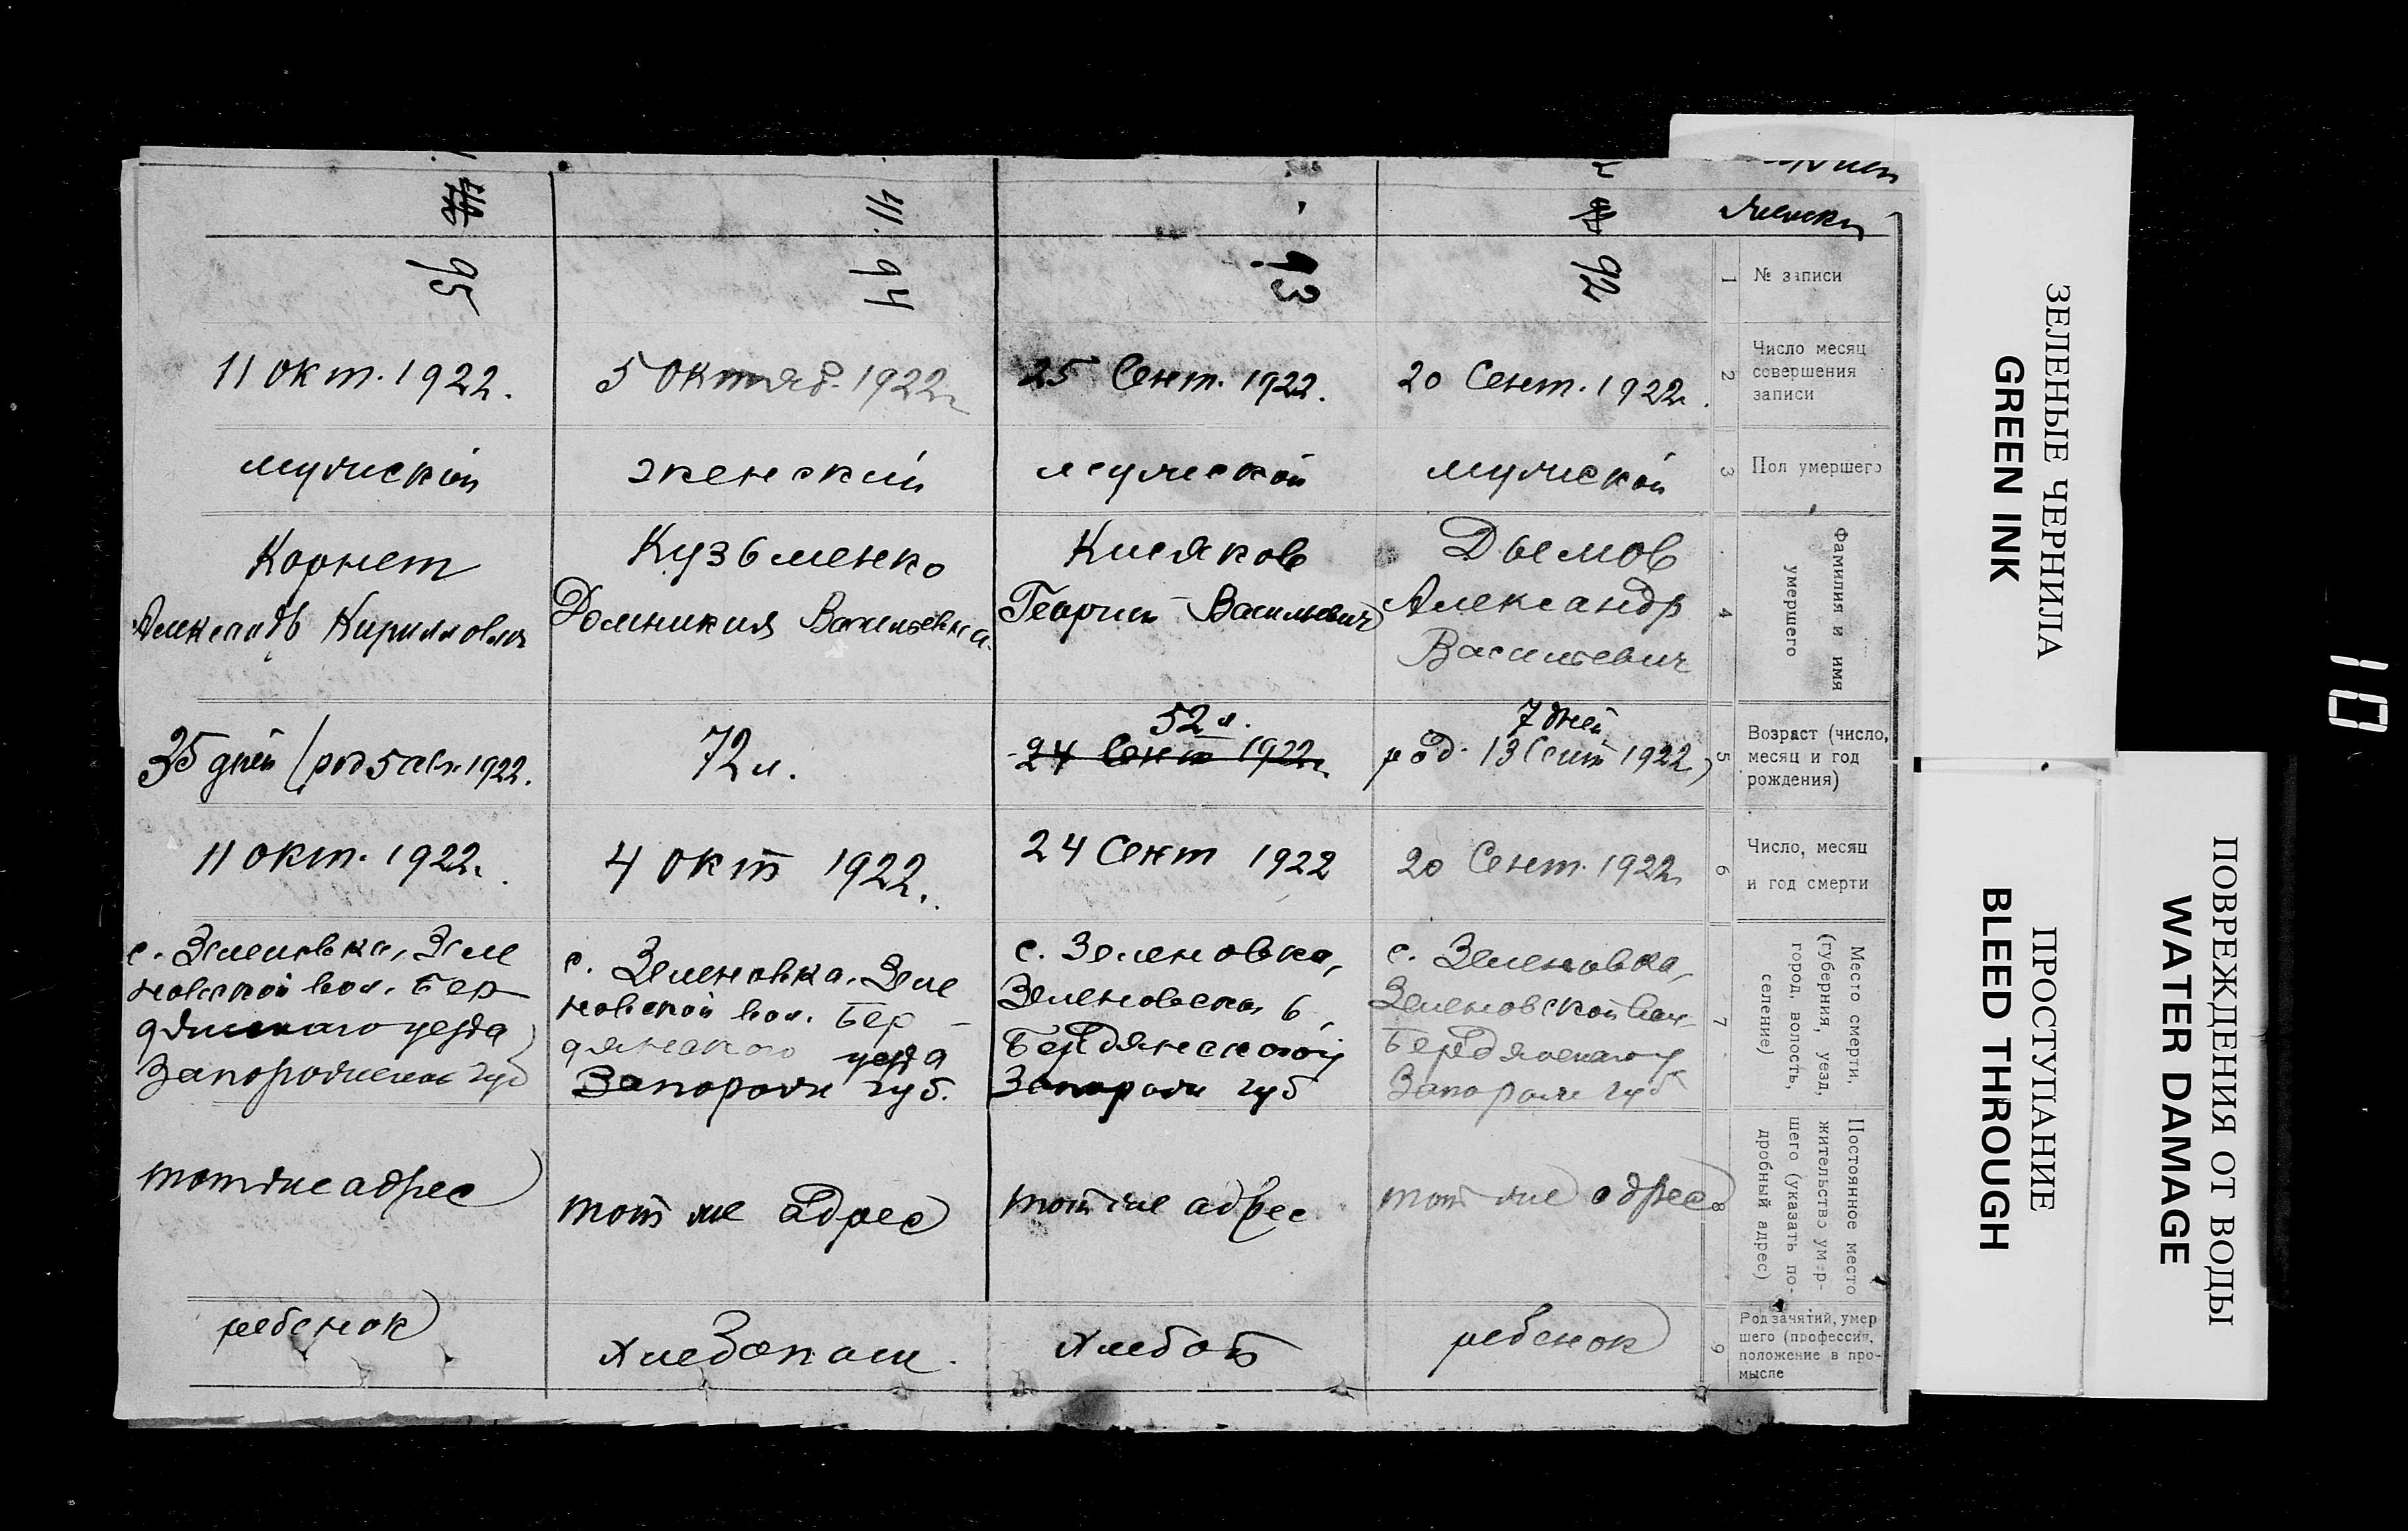 92
20 Сент. 1922
мужской
Дымов
Александр
Васильевич
7 дней
род. 13 Сент 1922
20 Сент. 1922
с. Зеленовка,
Зеленовской вол
Бердянского у
Запорож губ
тот же адрес
ребенок
93
25 Сент. 1922.
мужской
Кисяков
Георгий Васильевич
52 л.
24 Сент 1922
24 Сент 1922
с. Зеленовка,
Зеленовской в,
Бердянского у
Запорож губ
тот же адрес
хлебоп
41. 94
5 Октяб. 1922
женский
Кузьменко
Домникия Васильевна.
72 л.
4 Окт 1922.
с. Зеленовка, Зеле
новской вол. Бер-
дянского уезда
Запорож губ.
тот же адрес
хлебопаш.
95
11 окт. 1922.
мужской
Корнет
Александр Кириллович
35 дней (род 5 сен. 1922.
11 окт. 1922.
с. Зеленовка, Зеле
новской вол. Бер
дянского уезда
Запорожской губ
тот же адрес
ребенок
1
№ записи
2
Число месяц
совершения
записи
3
Пол умершего
4
Фамилия и имя
умершего
5
Возраст (число,
месяц и год
рождения)
6
Число, месяц
и год смерти
7
Место смерти,
(губерния, уезд,
город, волость,
селение)
8
Постоянное место
жительство умер-
шего (указать по-
дробный адрес)
9
Род занятий, умер
шего (профессия,
положение в про-
мысле
ЗЕЛЕНЫЕ ЧЕРНИЛА
GREEN INK
ПРОСТУПАНИЕ
BLEED THROUGH
ПОВРЕЖДЕНИЯ ОТ ВОДЫ
WATER DAMAGE
10